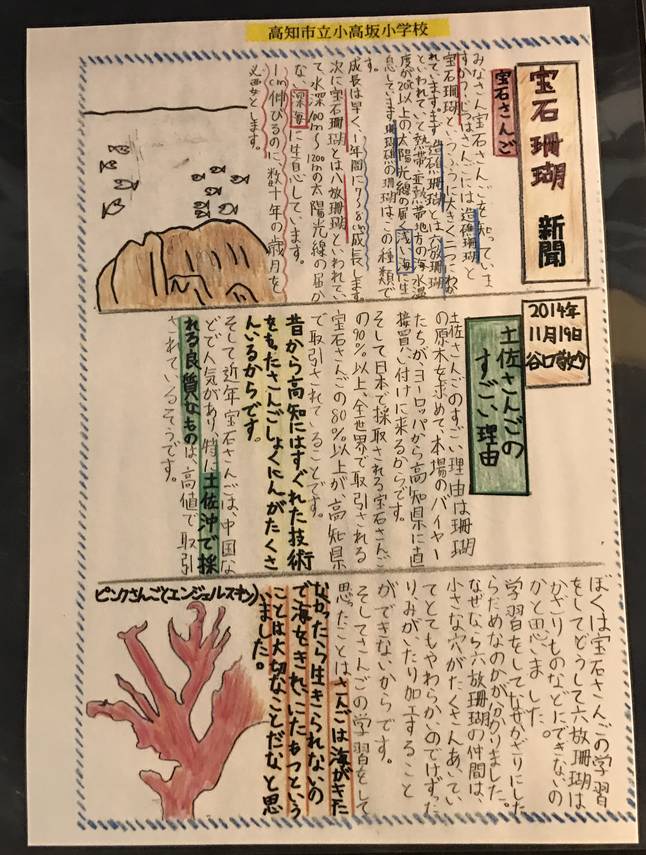 高知市立小高坂小学校
宝石珊瑚 新聞
2014年
11月19日
宝石さんご
みなさん宝石さんごを知っていま
すか。じつはさんごには造礁珊瑚と
宝石珊瑚というふうに大きく二つにわか
れています。まず造礁珊瑚とは六放珊瑚
といわれていて熱帯、亜熱帯地方の海水温
度が20℃以上の太陽光線の届く浅い海に生
息しています。珊瑚礁の珊瑚はこの種類で
す。
成長は早く、1年間に7〜8㎝成長します。
次に宝石珊瑚とは八放珊瑚といわれてい
て水深100m〜1200mの太陽光線の届か
ない深海に生息しています。
1㎝伸びるのに数十年の歳月を
必要とします。
土佐さんごの
すごい理由
土佐さんごのすごい理由は珊瑚
の原木を求めて、本場のバイヤー
たちがヨーロッパから高知県に直
接買い付けに来るからです。
そして日本で採取される宝石さんご
の90％以上、全世界で取引される
宝石さんごの80％以上が高知県
で取引されていることです。
昔から高知にはすぐれた技術
をもったさんごしょくにんがたくさ
んいるからです。
そして近年宝石さんごは、中国な
どで人気があり、特に土佐沖で採
れる良質なものは高値で取引
されているそうです。
ぼくは宝石さんごの学習
をしてどうして六放珊瑚は
かざりものなどにできないの
かと思いました。
学習をしてなぜかざりにした
らだめなのかが分かりました。
なぜなら六放珊瑚の仲間は、
小さな穴がたくさんあいてい
てとてもやわらかいのでけずった
り、みがいたり加工すること
ができないからです。
そしてさんごの学習をして
思ったことはさんごは海がきた
なかったら生きられないの
で海をきれいにたもつという
ことは大切なことだなと思
いました。
ピンクさんご(エンジェルスキン)